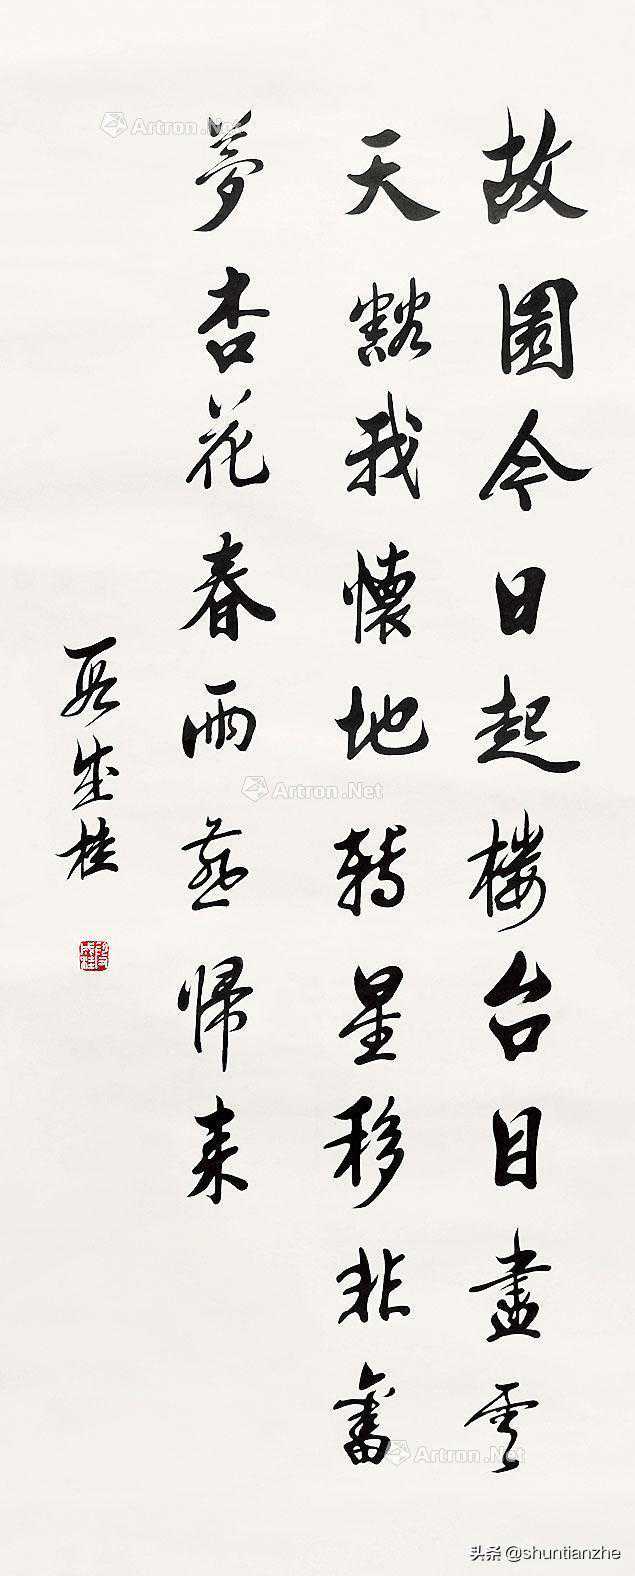 故園今日起楼台目盡雲
天豁我懷地轉星移非舊
夢杏花春雨燕帰来
段成桂
Artron.Net
Artron.Net
Artron.Net
头条 @shuntianzhe